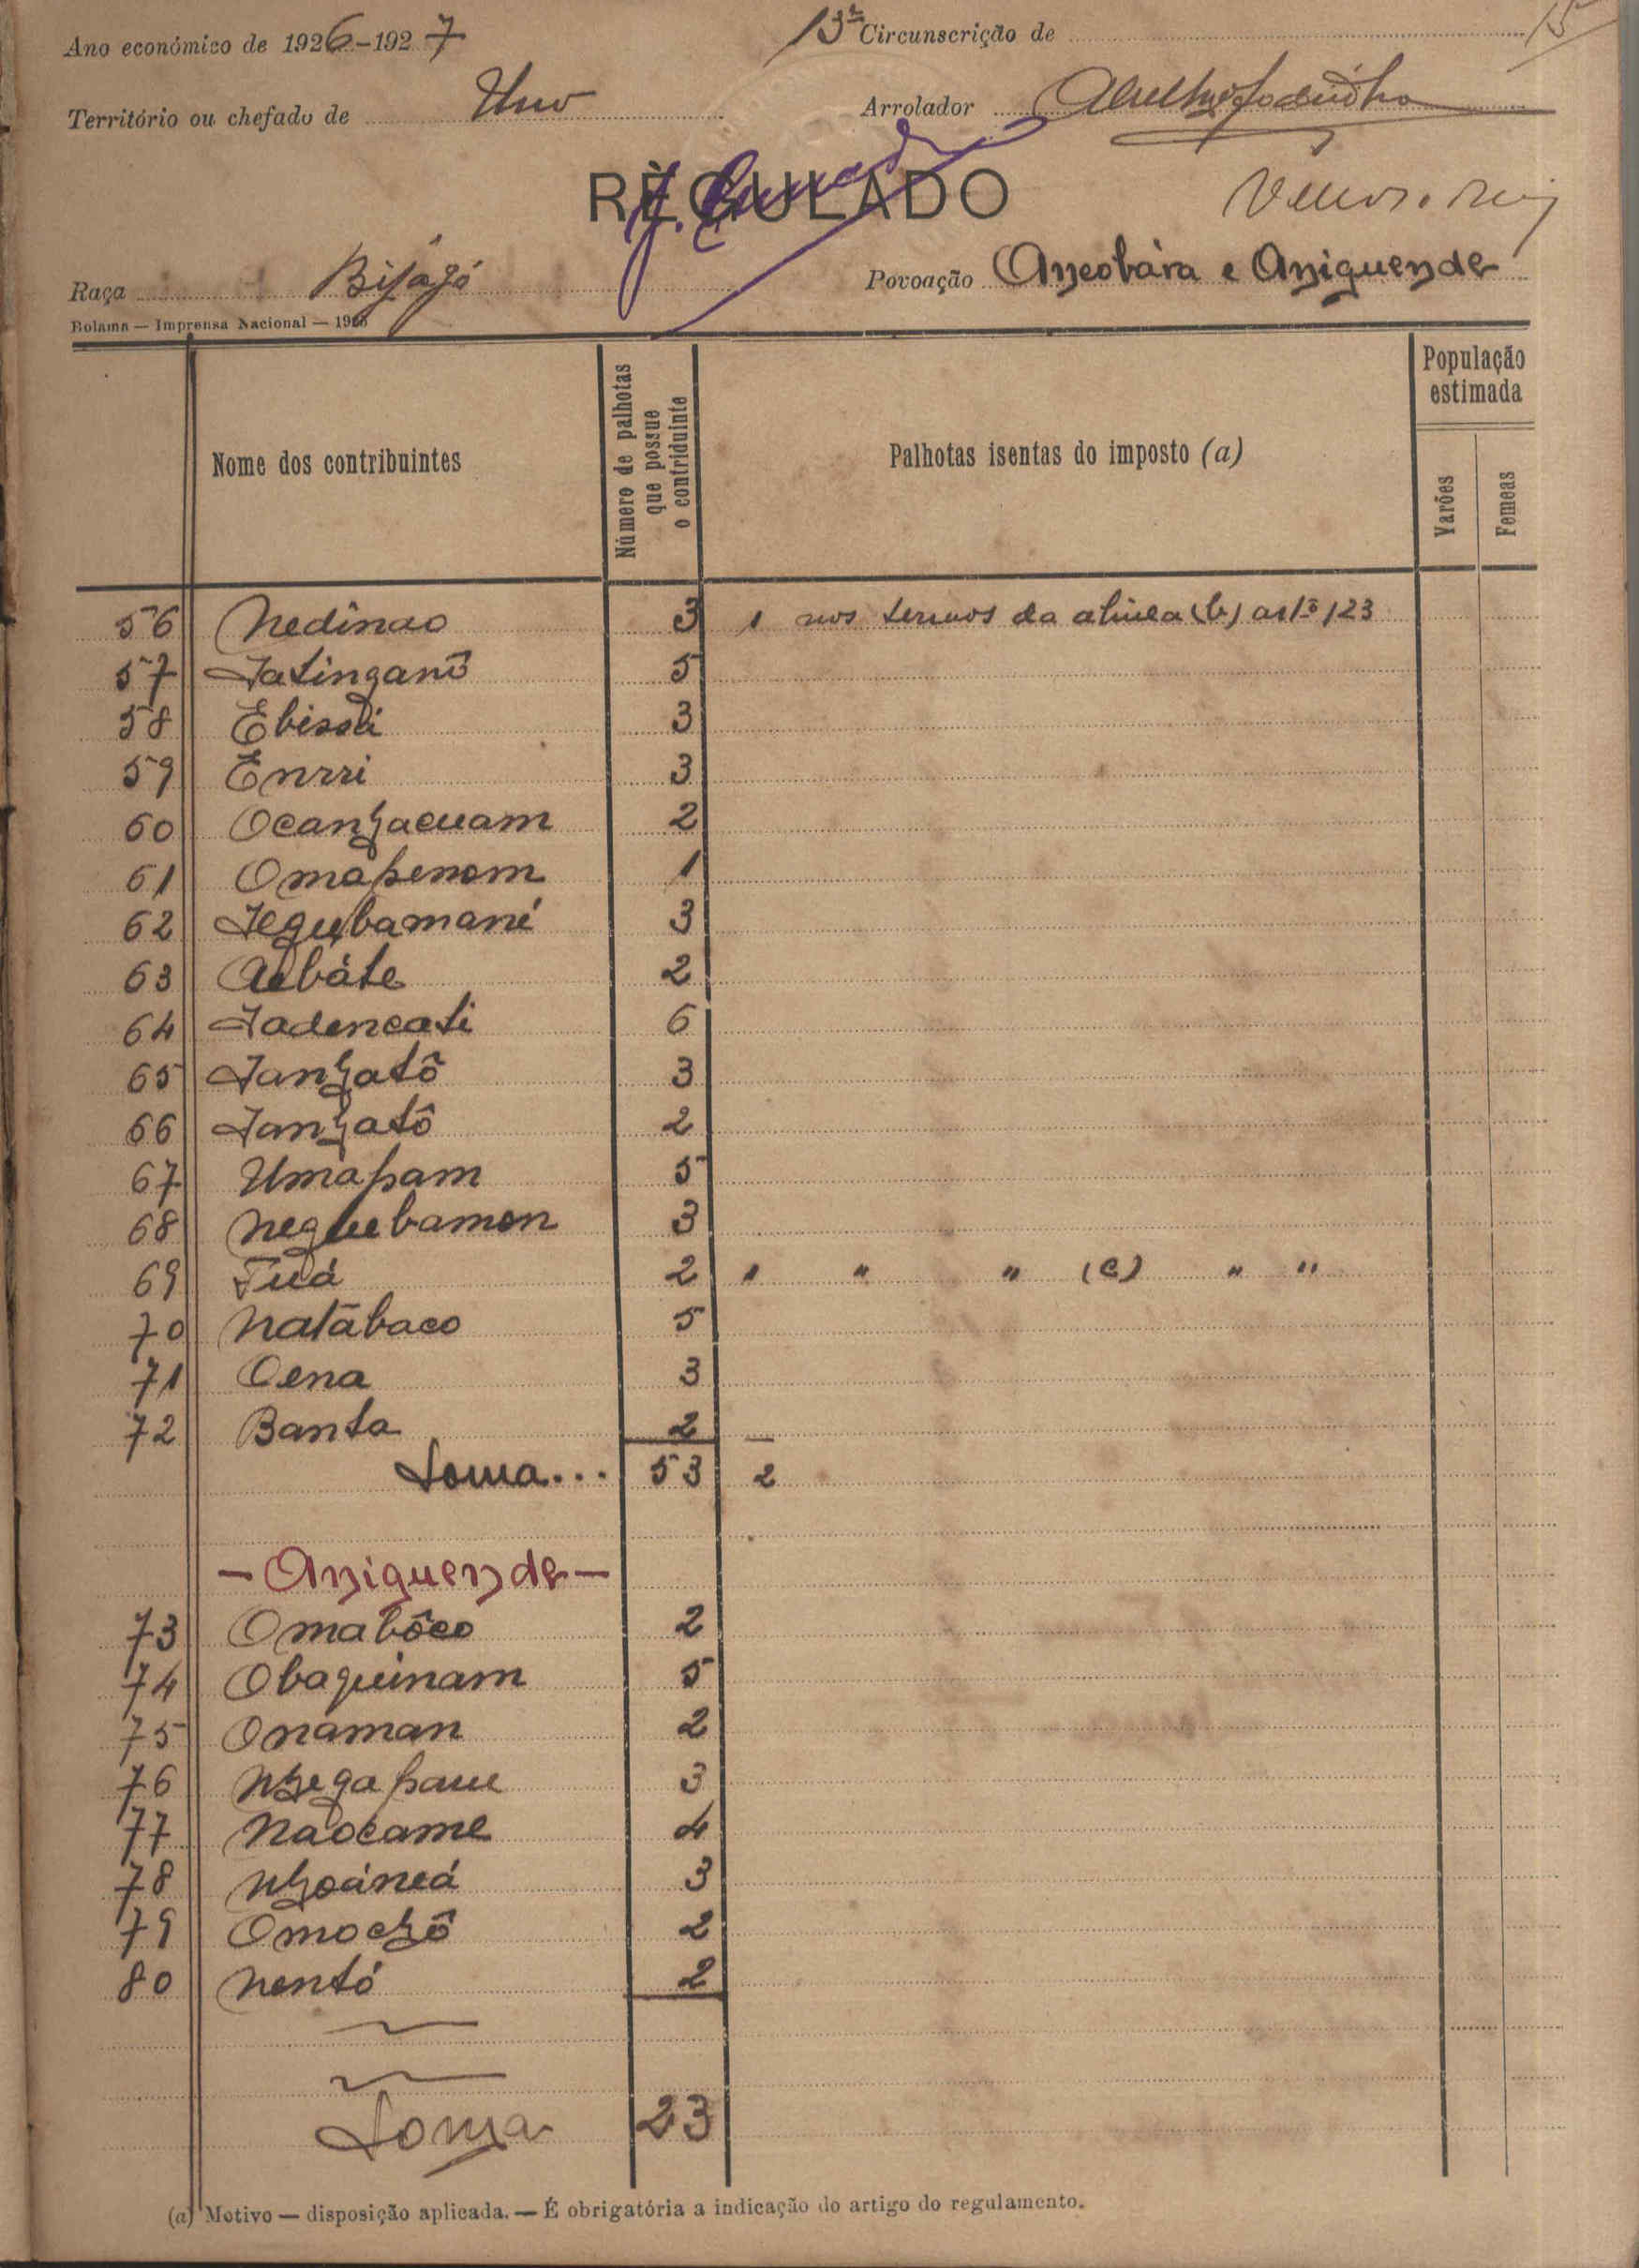 15
Ano económico de 1926-1927 13ª Circunscrição de
Território ou chefado de Uno Arrolador
RÈGULADO
Raça Bijagó Povoação Ancobára e Aniguende
Bolama — Imprensa Nacional — 1925
Nome dos contribuintes Número de palhotas que possue o contriduinte Palhotas isentas do imposto (a) População estimada
Varões Femeas
56 Nedinao 3 1 nos termos da alinea (b) artº 123
57 Jatinganô 5
58 Ebissá 3
59 Enrri 3
60 Ocanhacuam 2
61 Omapenom 1
62 Jegubamané 3
63 Acbáte 2
64 Jadencati 6
65 Janhatô 3
66 Janhatô 2
67 Umapam 5
68 Neguebamon 3
69 Tuá 2 1 " " (c) " "
70 Natábaco 5
71 Oena 3
72 Banta 2
Soma... 53 2
- Aniguende -
73 Omabôco 2
74 Obaquinam 5
75 Onaman 2
76 Nhegapaue 3
77 Naocame 4
78 Nhoáncá 3
79 Omochô 2
80 Nentó 2
Soma 23
(a) Motivo — disposição aplicada. — É obrigatória a indicação do artigo do regulamento.